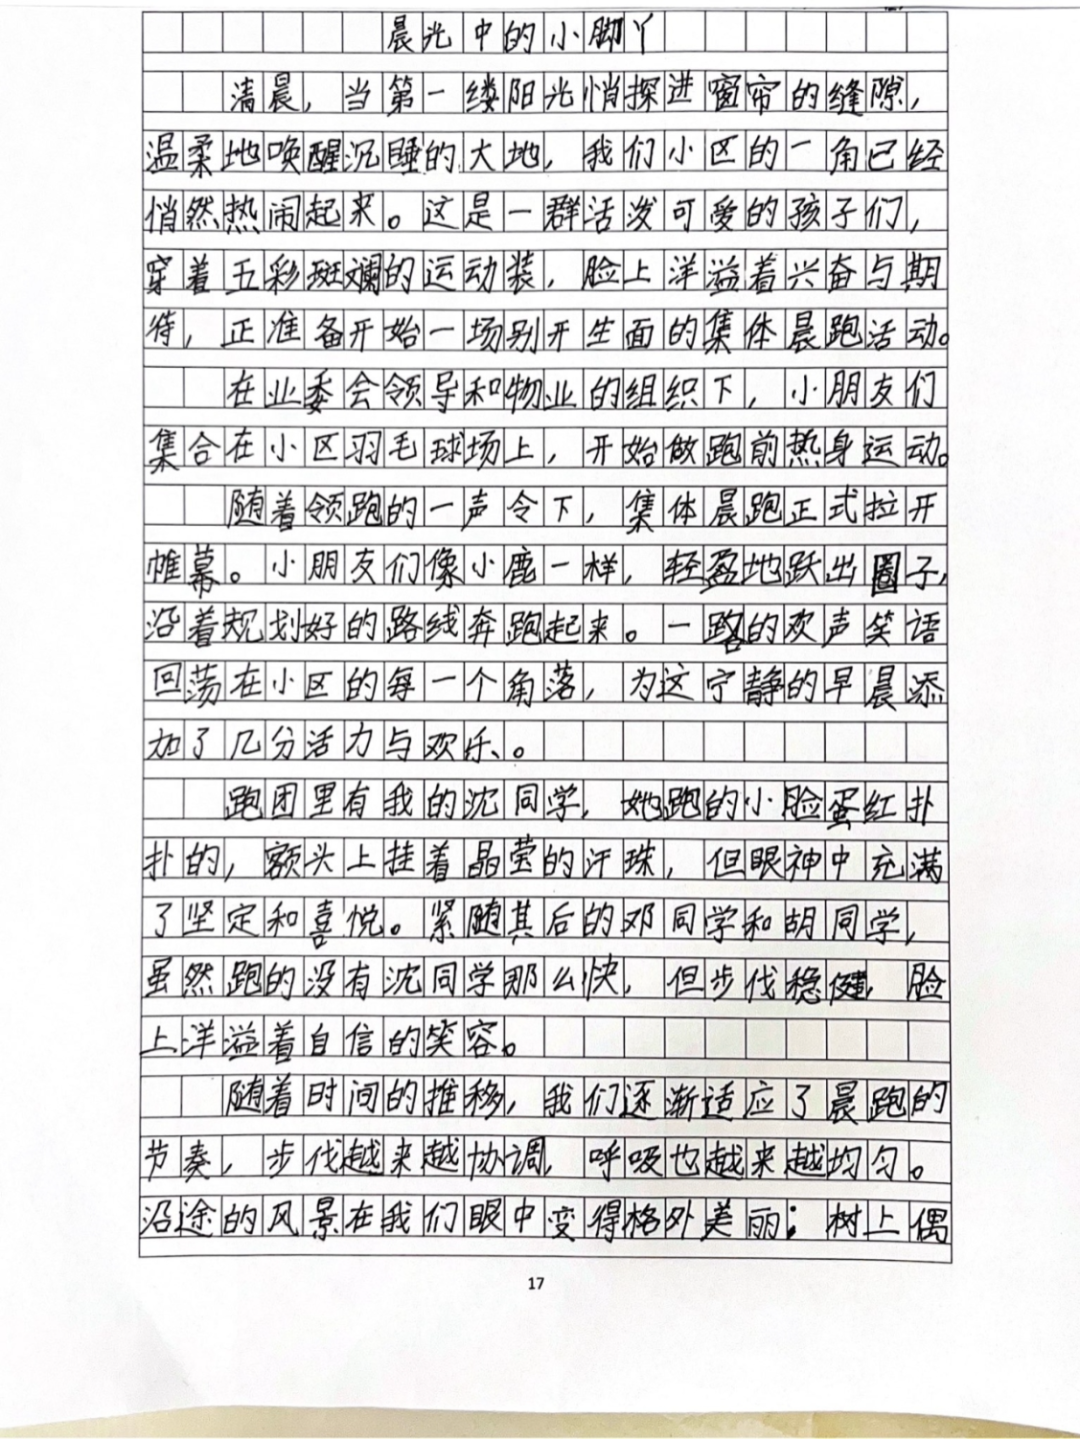 晨光中的小脚丫
清晨，当第一缕阳光悄探进窗帘的缝隙，
温柔地唤醒沉睡的大地，我们小区的一角已经
悄然热闹起来。这是一群活泼可爱的孩子们，
穿着五彩斑斓的运动装，脸上洋溢着兴奋与期
待，正准备开始一场别开生面的集体晨跑活动。
在业委会领导和物业的组织下，小朋友们
集合在小区羽毛球场上，开始做跑前热身运动。
随着领跑的一声令下，集体晨跑正式拉开
帷幕。小朋友们像小鹿一样，轻盈地跃出圈子，
沿着规划好的路线奔跑起来。一路的欢声笑语
回荡在小区的每一个角落，为这宁静的早晨添
加了几分活力与欢乐。
跑团里有我的沈同学，她跑的小脸蛋红扑
扑的，额头上挂着晶莹的汗珠，但眼神中充满
了坚定和喜悦。紧随其后的邓同学和胡同学，
虽然跑的没有沈同学那么快，但步伐稳健，脸
上洋溢着自信的笑容。
随着时间的推移，我们逐渐适应了晨跑的
节奏，步伐越来越协调，呼吸也越来越均匀。
沿途的风景在我们眼中变得格外美丽；树上偶
17